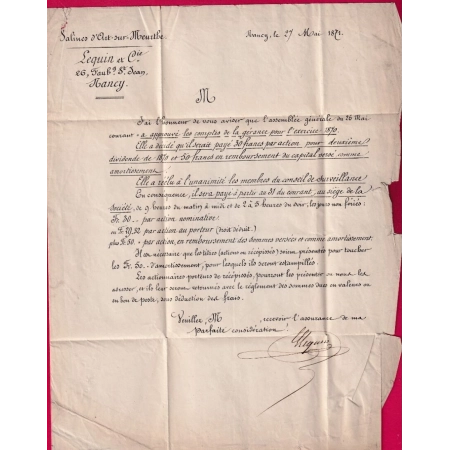 Salines d'Art-sur-Meurthe
Lequin & Cie
26, Faubg. St. Jean,
Nancy.
Nancy, le 27 Mai 1871.
M
J'ai l'honneur de vous aviser que l'assemblée générale du 26 Mai
courant a approuvé les comptes de la gérance pour l'exercice 1870.
Elle a décidé qu'il serait payé 30 francs par action pour deuxième
dividende de 1870 et 50 francs en remboursement du capital versé, comme
amortissement.
Elle a réélu à l'unanimité les membres du conseil de Surveillance
En conséquence, il sera payé à partir du 31 du courant, au siège de la
Société, de 9 heures du matin à midi et de 2 à 5 heures du soir, les jours non fériés:
Fr. 30.. par action nominative:
ou F. 29,52 par action au porteur (test déduit)
plus F. 50. par action, en remboursement des sommes versées et comme amortissement:
Il est nécessaire que les titres (actions ou récépissés) soient présentés pour toucher
les Fr. 50.. d'amortissement, pour lesquels ils seront estampillés
Les actionnaires porteurs de récépissés, pourront les présenter ou nous les
adresser, et ils leur seront retournés avec le règlement des sommes dues en valeurs ou
en bon de poste, sous déduction des frais.
Veuillez, M recevoir l'assurance de ma
parfaite considération!
Lequin